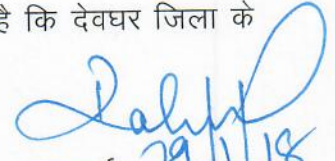 है कि देवघर जिला के
29/1/18